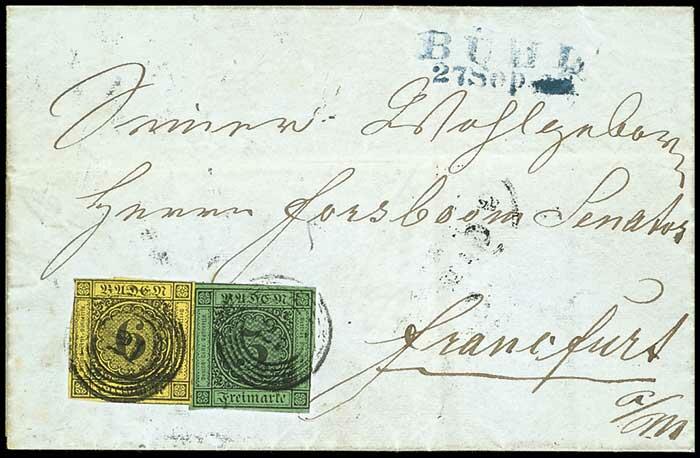 BÜHL
27 Sep.
Seiner Wohlgeborn
Herrn Forsboom Senator
Francfurt
a/M
BADEN
BADEN
Freimarke